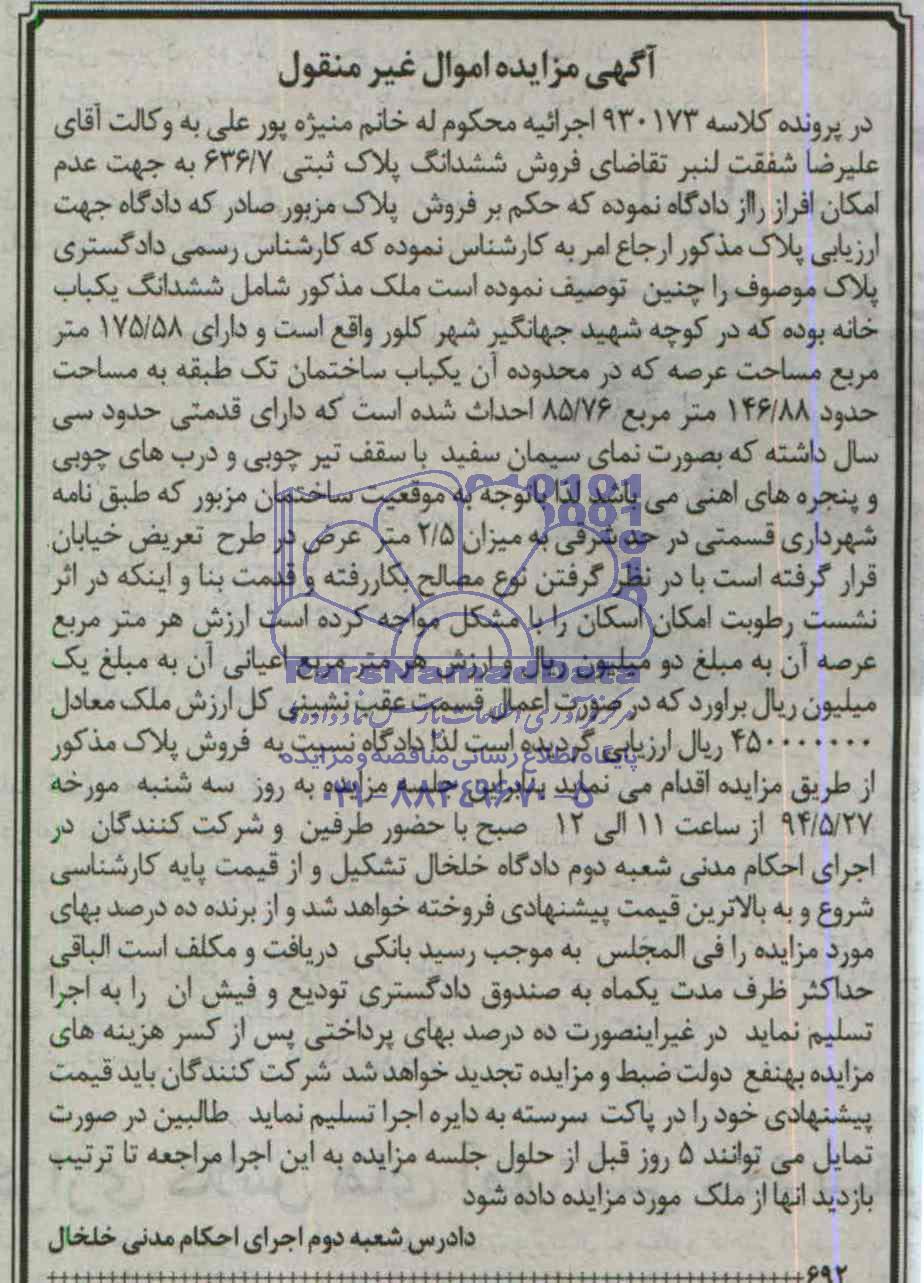 آگهی مزایده اموال غیر منقول
در پرونده کلاسه ۹۳۰۱۷۳ اجرائیه محکوم له خانم منیژه پور علی به وکالت آقای
علیرضا شفقت لنبر تقاضای فروش ششدانگ پلاک ثبتی ۶۳۶/۷ به جهت عدم
امکان افراز رااز دادگاه نموده که حکم بر فروش پلاک مزبور صادر که دادگاه جهت
ارزیابی پلاک مذکور ارجاع امر به کارشناس نموده که کارشناس رسمی دادگستری
پلاک موصوف را چنین توصیف نموده است ملک مذکور شامل ششدانگ یکباب
خانه بوده که در کوچه شهید جهانگیر شهر کلور واقع است و دارای ۱۷۵/۵۸ متر
مربع مساحت عرصه که در محدوده آن یکباب ساختمان تک طبقه به مساحت
حدود ۱۴۶/۸۸ متر مربع ۸۵/۷۶ احداث شده است که دارای قدمتی حدود سی
سال داشته که بصورت نمای سیمان سفید با سقف تیر چوبی و درب های چوبی
و پنجره های اهنی می باشد لذا باتوجه به موقعیت ساختمان مزبور که طبق نامه
شهرداری قسمتی در حد شرقی به میزان ۲/۵ متر عرض در طرح تعریض خیابان
قرار گرفته است با در نظر گرفتن نوع مصالح بکاررفته و قدمت بنا و اینکه در اثر
نشست رطوبت امکان اسکان را با مشکل مواجه کرده است ارزش هر متر مربع
عرصه آن به مبلغ دو میلیون ریال و ارزش هر متر مربع اعیانی آن به مبلغ یک
میلیون ریال براورد که در صورت اعمال قسمت عقب نشینی کل ارزش ملک معادل
۴۵۰۰۰۰۰۰۰ ریال ارزیابی گردیده است لذا دادگاه نسبت به فروش پلاک مذکور
از طریق مزایده اقدام می نماید بنابراین جلسه مزایده به روز سه شنبه مورخه
۹۴/۵/۲۷ از ساعت ۱۱ الی ۱۲ صبح با حضور طرفین و شرکت کنندگان در
اجرای احکام مدنی شعبه دوم دادگاه خلخال تشکیل و از قیمت پایه کارشناسی
شروع و به بالاترین قیمت پیشنهادی فروخته خواهد شد و از برنده ده درصد بهای
مورد مزایده را فی المجلس به موجب رسید بانکی دریافت و مکلف است الباقی
حداکثر ظرف مدت یکماه به صندوق دادگستری تودیع و فیش ان را به اجرا
تسلیم نماید در غیراینصورت ده درصد بهای پرداختی پس از کسر هزینه های
مزایده بهنفع دولت ضبط و مزایده تجدید خواهد شد شرکت کنندگان باید قیمت
پیشنهادی خود را در پاکت سرسته به دایره اجرا تسلیم نماید طالبین در صورت
تمایل می توانند ۵ روز قبل از حلول جلسه مزایده به این اجرا مراجعه تا ترتیب
بازدید انها از ملک مورد مزایده داده شود
دادرس شعبه دوم اجرای احکام مدنی خلخال
۶۹۲
ParsNamadData
پایگاه اطلاع رسانی مناقصه و مزایده
۰۲۱-۸۸۳۴۹۶۷۰-۵